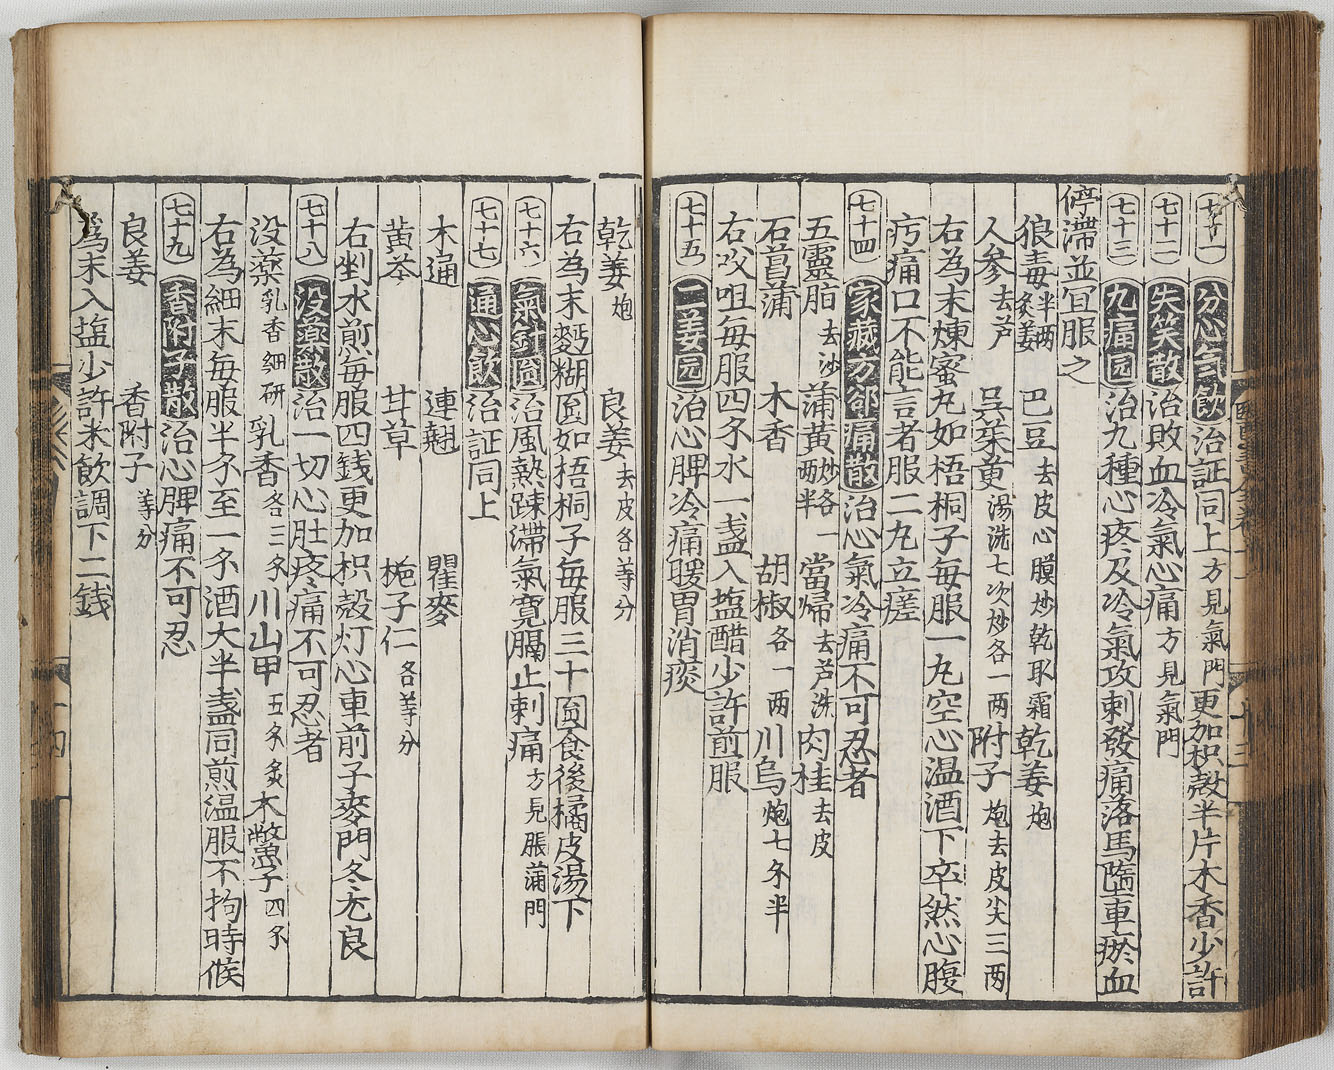 七十一 分心氣飮 治証同上方見氣門更加枳殼半片木香少許
七十二 失笑散 治敗血冷氣心痛方見氣門
七十三 九痛园 治九種心疼及冷氣攻刺發痛落馬隨車瘀血
停滯並宜服之
狼毒半两炙姜 巴豆去皮心膜炒乾取霜 乾姜炮
人參去芦 吳茱萸湯洗七次炒各一两 附子炮去皮尖三两
右為末煉蜜丸如梧桐子每服一丸空心温酒下卒然心腹
痛口不能言者服二丸立瘥
七十四 家藏方郤痛散 治心氣冷痛不可忍者
五靈脂去沙 蒲黄炒各一两半 當歸去芦洗 肉桂去皮
石菖蒲 木香 胡椒各一两 川烏炮七分半
右㕮咀每服四分水一盞入塩醋少許前服
七十五 二姜园 治心脾冷痛暖胃消痰
乾姜炮 良姜去皮各等分
右為末麪糊圎如梧桐子每服三十圎食後橘皮湯下
七十六 氣針圎 治風熱踈滯氣寬膈止刺痛方見脹蒲門
七十七 通心飮 治証同上
木通 連翹 瞿麥
黄芩 甘草 梔子仁各等分
右剉水煎每服四錢更加枳殼灯心車前子麥門冬尤良
七十八 没藥散 治一切心肚疼痛不可忍者
没藥乳香細研 乳香各三分 川山甲五分炙 木鱉子四分
右為細末每服半分至一分酒大半盞同煎温服不拘時候
七十九 香附子散 治心脾痛不可忍
良姜 香附子等分
為末入塩少許米飮調下二錢